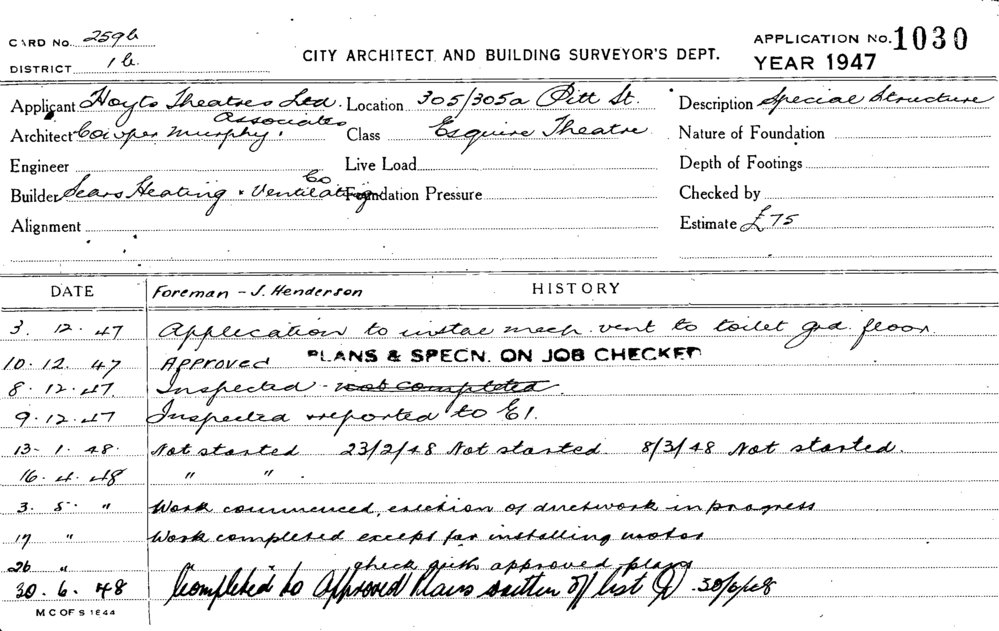 CARD No. 259b
DISTRICT 1b
CITY ARCHITECT AND BUILDING SURVEYOR'S DEPT.
APPLICATION No. 1030
YEAR 1947
Applicant Hoyts Theatres Ltd. Location 305/305a Pitt St. Description Special Structure
Architect Cowper Murphy Associates Class Esquire Theatre Nature of Foundation
Engineer Live Load Depth of Footings
Builder Sears Heating & Ventilating Co Foundation Pressure Checked by
Alignment Estimate £75
DATE Foreman - J. Henderson HISTORY
3. 12. 47 Application to instal mech. vent to toilet grd. floor
10. 12. 47 Approved PLANS & SPECN. ON JOB CHECKED
8. 12. 47. Inspected - not completed.
9. 12. 47 Inspected & reported to E1.
13. 1. 48. Not started 23/2/48 Not started. 8/3/48 Not started.
16. 4. 48 " "
3. 5. " Work commenced, erection of ductwork in progress
17 " Work completed except for installing motor
26 " check with approved plans
30. 6. 48 Completed to Approved Plans written off list 30/6/48
M C OF S 1844